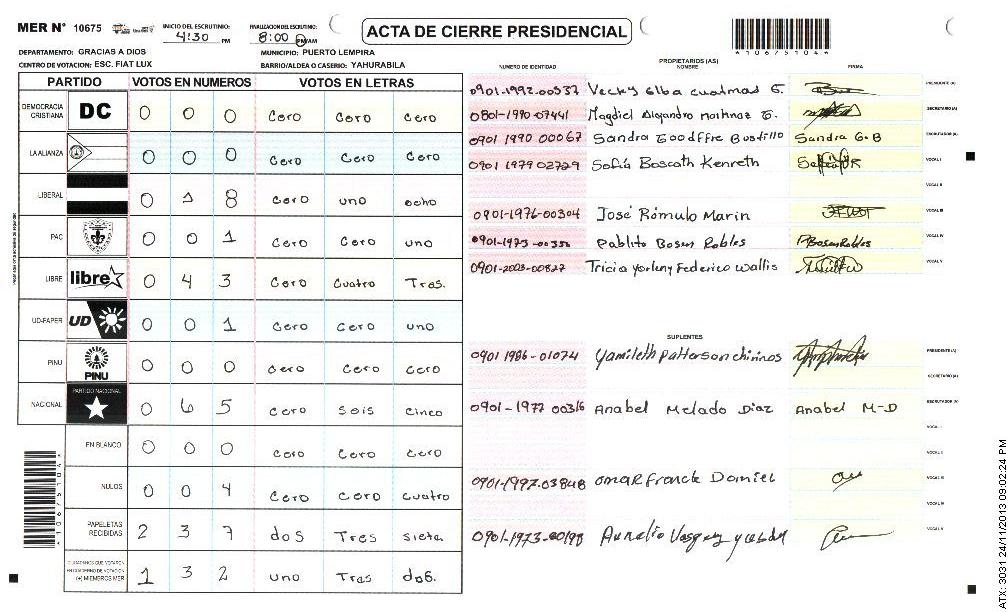 MER N° 10675
INICIO DEL ESCRUTINIO:
4:30 PM
FINALIZACION DEL ESCRUTINIO:
8:00 PM/AM
ACTA DE CIERRE PRESIDENCIAL
*10675104*
DEPARTAMENTO: GRACIAS A DIOS
MUNICIPIO: PUERTO LEMPIRA
CENTRO DE VOTACION: ESC. FIAT LUX
BARRIO/ALDEA O CASERIO: YAHURABILA
PARTIDO VOTOS EN NUMEROS VOTOS EN LETRAS
DEMOCRACIA CRISTIANA DC 0 0 0 cero cero cero
LA ALIANZA 0 0 0 cero cero cero
LIBERAL 0 1 8 cero uno ocho
PAC 0 0 1 cero cero uno
LIBRE libre 0 4 3 cero cuatro Tras.
UD-FAPER UD 0 0 1 cero cero uno
PINU PINU 0 0 0 cero cero cero
NACIONAL PARTIDO NACIONAL 0 6 5 cero seis cinco
EN BLANCO 0 0 0 cero cero cero
NULOS 0 0 4 cero cero cuatro
PAPELETAS RECIBIDAS 2 3 7 dos Tres siete
CIUDADANOS QUE VOTARON EN CUADERNO DE VOTACION (+) MIEMBROS MER 1 3 2 uno Tras dos.
*10675104*
PROPIETARIOS (AS)
NUMERO DE IDENTIDAD NOMBRE FIRMA
0901-1992-00537 Vecky Elba cuatmas G. PRESIDENTE (A)
0801-1990-07441 Magdiel Alejandro SECRETARIO (A)
0901 1990 00067 Sandra Goodffre Bustillo Sandra G-B ESCRUTADOR (A)
0901 1979 02729 Sofia Boscath Kenreth VOCAL I
VOCAL II
0901-1976-00304 José Rómulo Marin VOCAL III
0901-1973-00350 Pablito Bosen Robles P Bosen Robles VOCAL IV
0901-2003-00827 Tricia Yorleny Federico Wallis VOCAL V
SUPLENTES
0901 1986-01074 Yamileth Patterson chirinos PRESIDENTE (A)
SECRETARIO (A)
0901-1977 00316 Anabel Melado Diaz Anabel M-D ESCRUTADOR (A)
VOCAL I
VOCAL II
0901-1992-03848 omar Franck Daniel VOCAL III
VOCAL IV
0901-1973-00198 Aurelio Vasquez VOCAL V
ATX: 3031 24/11/2013 09:02:24 PM